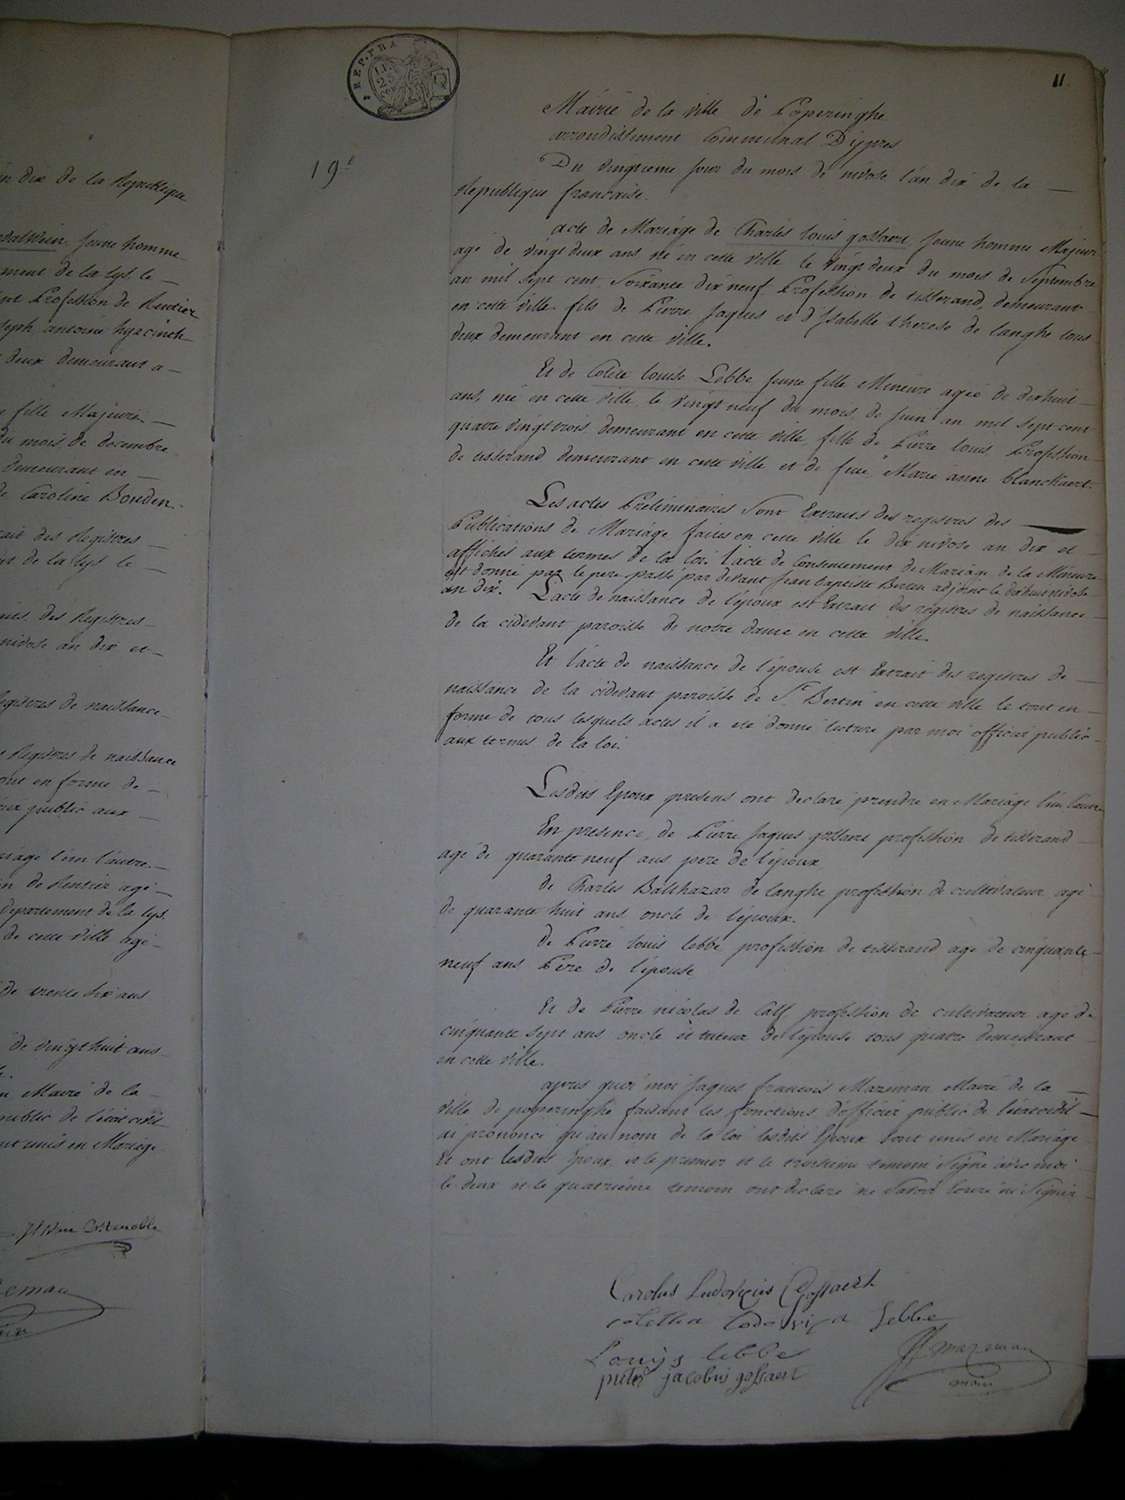 n dix de la Republique
jeune homme
ment de la Lys le
Profession de Rentier
seph antoine hyacinth
deux demeurant a
fille Majeure
du mois de decembre
demeurant en
de Caroline Bouden.
rait des Registres
de la Lys le
des Registres
nivose an dix et
egistres de naissance
Registres de naissance
out en forme de
public aux
riage l'un l'autre.
n de Rentier agé
departement de la Lys
de cette ville agé
de trente six ans
de vingt huit ans
Maire de la
public de l'état civil
unis en Mariage.
eman
REP. FRA.
11.
19e
Mairie de la ville de Poperinghe
arrondissement Communal Dijpres
Du vingtieme jour du mois de nivose l'an dix de la
Republique francaise.
acte de Mariage de Charles louis gossaere jeune homme Majeur
agé de vingt deux ans né en cette ville le vingt deux du mois de Septembre
an mil sept cent Soixante dix neuf Profession de tisserand, demeurant
en cette ville fils de Pierre Jaques et d'Isabelle therese de langhe tous
deux demeurant en cette ville.
Et de Colette louise Lebbe jeune fille Mineure agée de dixhuit
ans, née en cette ville le vingt neuf du mois de juin an mil sept cent
quatre vingt trois, demeurant en cette ville, fille de Pierre louis Profession
de tisserand demeurant en cette ville et de feue Marie anne blanckaert.
Les actes Preliminaires Sont Extraits des registres des
Publications de Mariage faites en cette ville le dix nivose an dix et
affichés aux termes de la loi. l'acte de Consentement de Mariage de la Mineure
est donné par le pere passé par devant jean baptiste Berten adjoint le dixhuit nivose
an dix. L'acte de naissance de l'époux est Extrait des registres de naissance
de la cidevant paroisse de notre dame en cette ville.
Et l'acte de naissance de l'épouse est Extrait des registres de
naissance de la cidevant paroisse de St. Bertin en cette ville le tout en
forme de tous lesquels actes il a été donné lecture par moi officier public
aux termes de la loi.
Lesdits Epoux presens ont declaré prendre en Mariage l'un l'autre
En presence, de Pierre Jaques gossaere profession de tisserand
agé de quarante neuf ans pere de l'époux
de Charles Balthazar de langhe profession de cultivateur agé
de quarante huit ans, oncle de l'époux.
de Pierre louis lebbe profession de tisserand agé de cinquante
neuf ans Pere de l'épouse
Et de Pierre nicolas de Calf profession de cultivateur agé de
cinquante sept ans oncle et tuteur de l'épouse tous quatre demeurant
en cette ville.
apres quoi moi Jaques francois Mazeman Maire de la
ville de poperinghe faisant les fonctions d'officier public de l'état civil
ai prononcé qu'au nom de la loi lesdits Epoux sont unis en Mariage
Et ont lesdits Epoux et le premier et le troisieme temoin Signé avec moi
le deux et le quatrieme temoin ont declaré ne Savoir Ecrire ni Signer
Carolus Ludovicus Gossaert
coletta Lodoviga Lebbe
Louijs lebbe
pieter jacobus gossaert
mazeman
maire